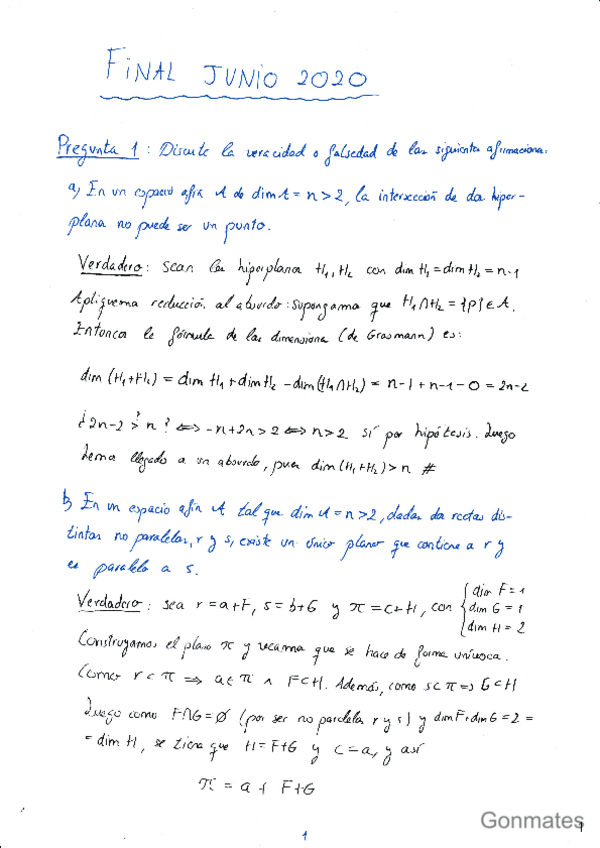 FINAL JUNIO 2020
Pregunta 1: Discute la veracidad o falsedad de las siguientes afirmaciones:
a) En un espacio afín A de dim A = n > 2, la intersección de dos hiper-
planos no puede ser un punto.
Verdadero: Sean los hiperplanos H₁, H₂ con dim H₁ = dim H₂ = n-1
Apliquemos reducción al absurdo: supongamos que H₁∩H₂ = {p} ∈ A.
Entonces la fórmula de las dimensiones (de Grasmann) es:
dim (H₁+H₂) = dim H₁ + dim H₂ - dim (H₁∩H₂) = n-1 + n-1 - 0 = 2n-2
¿2n-2 > n? ⟺ -n+2n > 2 ⟺ n > 2 sí por hipótesis. Luego
hemos llegado a un absurdo, pues dim (H₁+H₂) > n #
b) En un espacio afín A tal que dim A = n > 2, dadas dos rectas dis-
tintas no paralelas, r y s, existe un único plano que contiene a r y
es paralelo a s.
Verdadero: sea r = a+F, s = b+G y π = c+H, con { dim F = 1
dim G = 1
dim H = 2
Construyamos el plano π y veamos que se hace de forma unívoca.
Como r ⊂ π ⟹ a ∈ π ∧ F ⊂ H. Además, como s ⊂ π ⟹ G ⊂ H
Luego como F∩G = Ø (por ser no paralelas r y s) y dim F + dim G = 2 =
= dim H, se tiene que H = F+G y c = a, y así
π = a + F+G
1
Gonmates
1